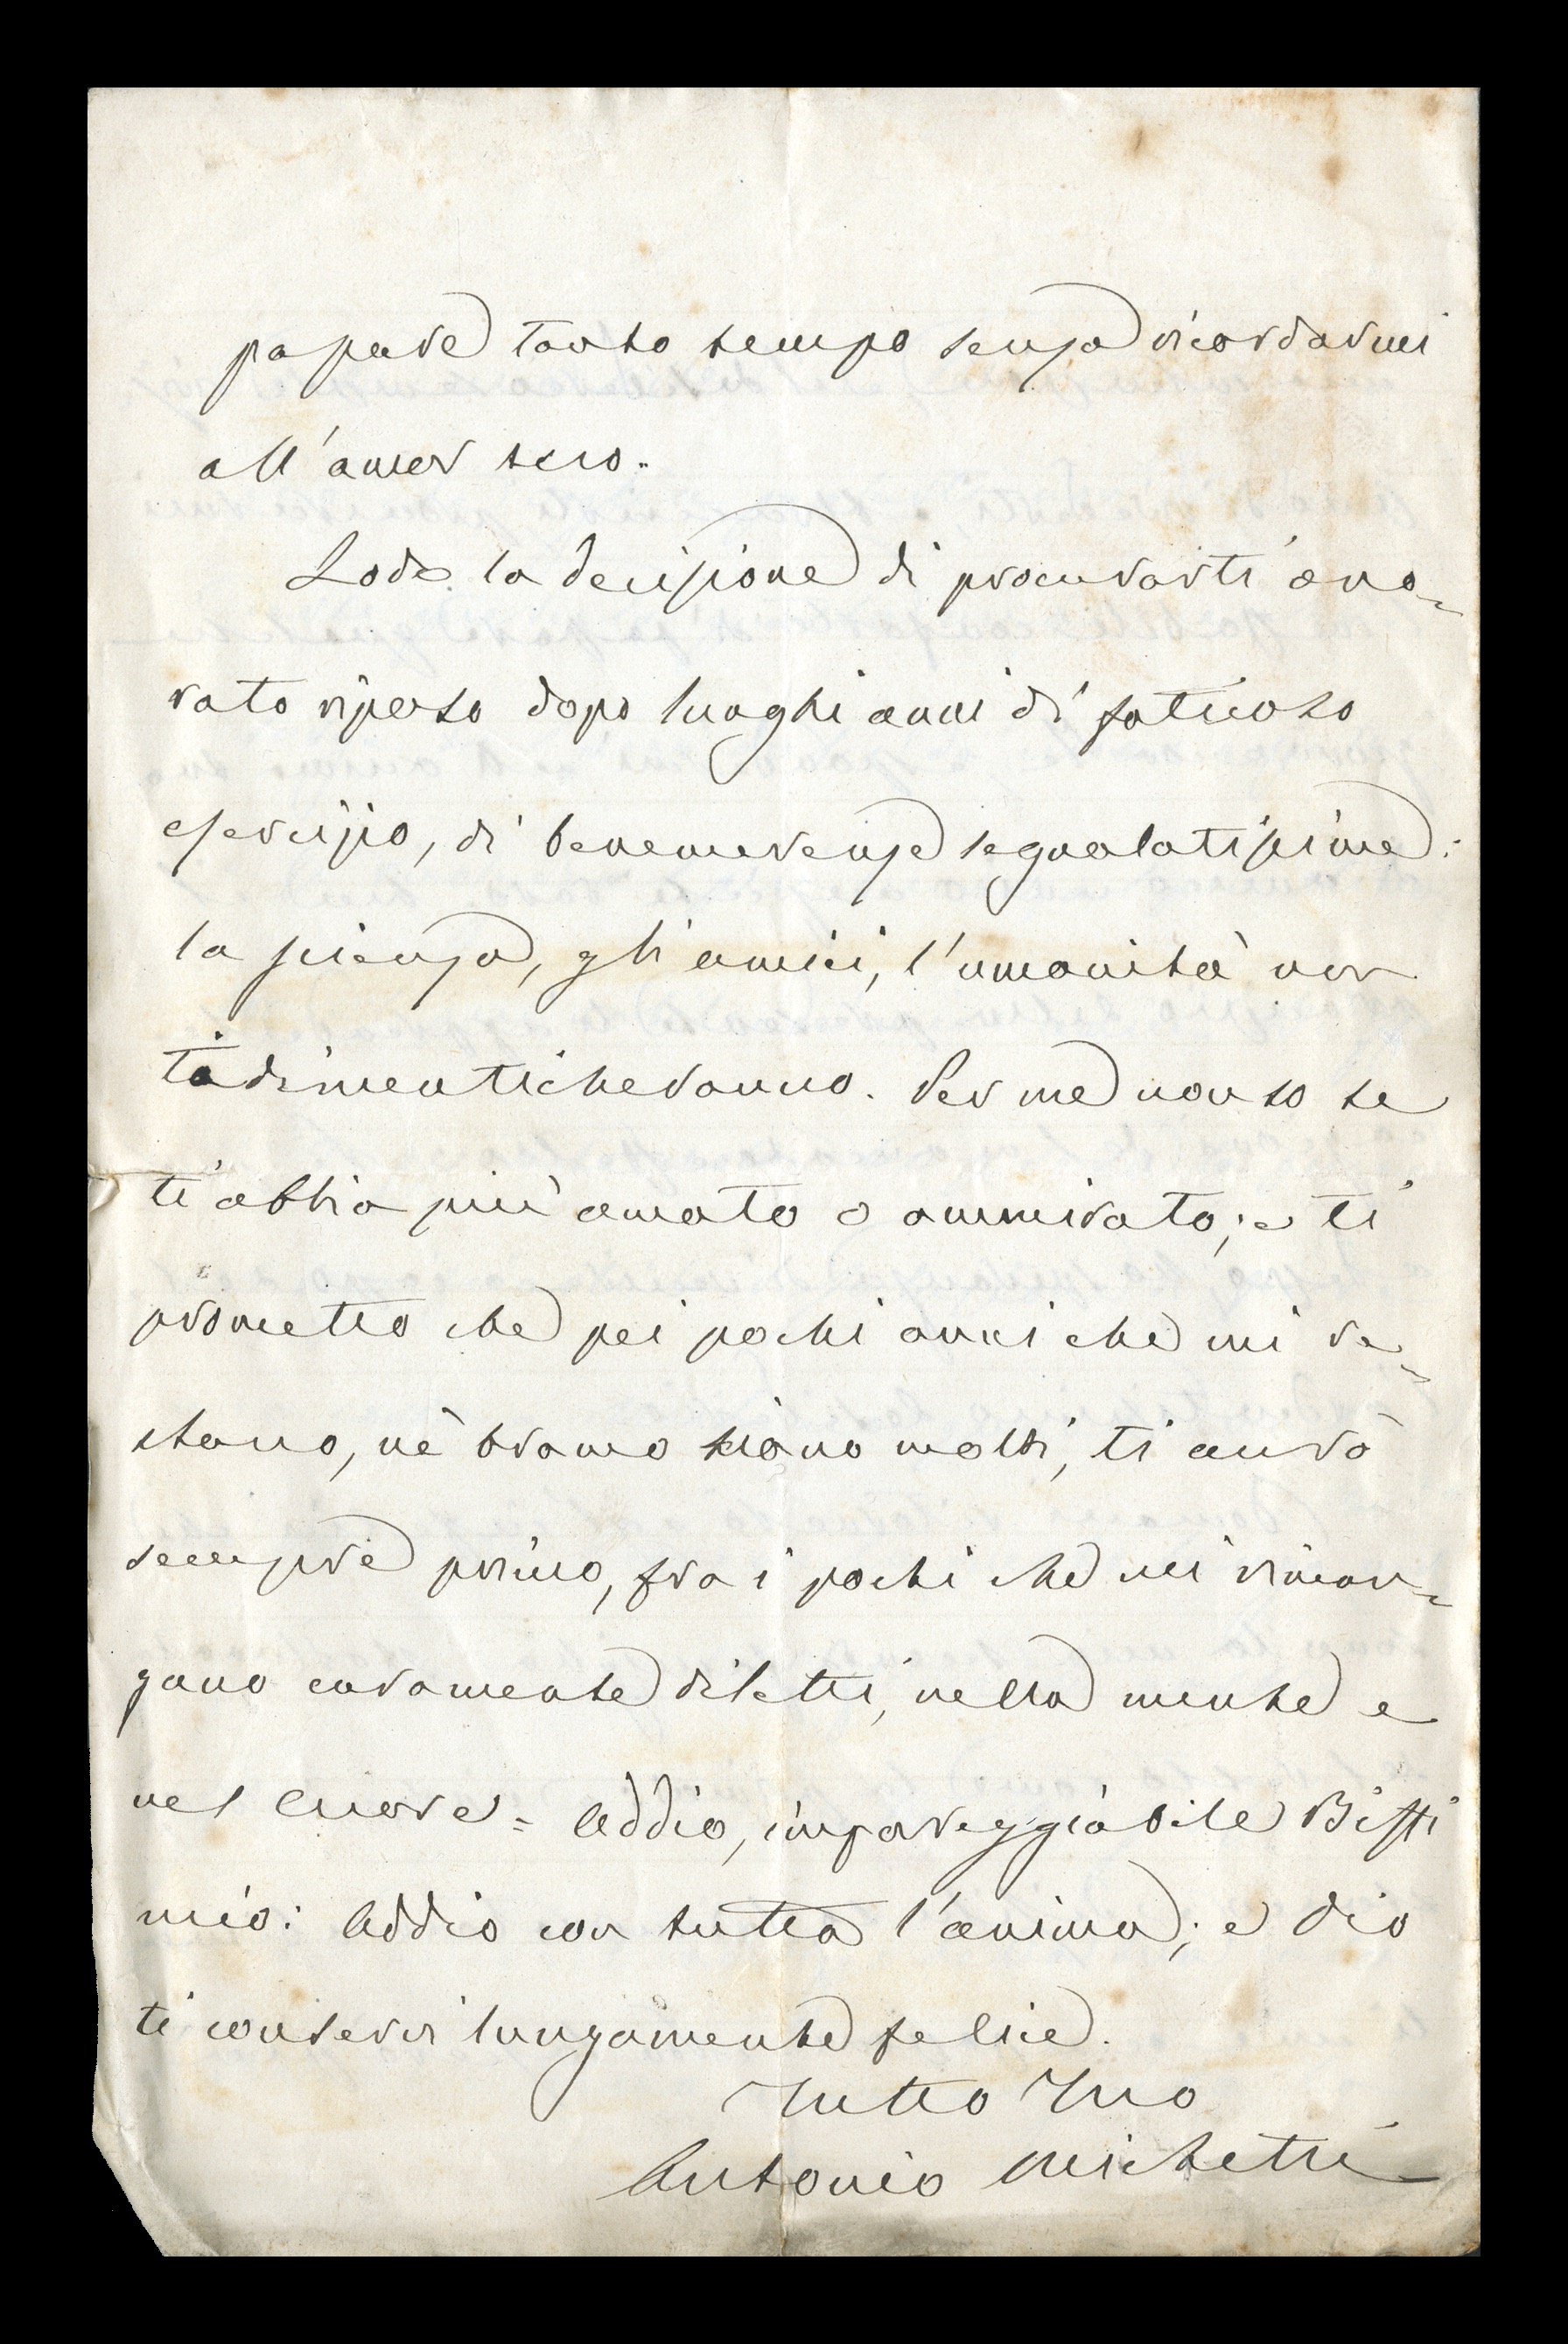 passare tanto tempo senza ricordarmi
all'amor tuo.
Lodo la decisione di procurarti ono-
rato riposo dopo lunghi anni di faticoso
esercizio, di benemerenze segnalatissime:
la scienza, gli amici, l'umanità non
ti dimenticheranno. Per me non so se
ti abbia più amato o ammirato; e ti
prometto che pei pochi anni che mi re-
stano, nè bramo siano molti, ti avrò
sempre primo, fra i pochi che mi riman-
gano caramente diletti, nella mente e
nel cuore. Addio, impareggiabile Biffi
mio: Addio con tutta l'anima; e Dio
ti conservi lungamente felice.
Tutto Tuo
Antonio Michetti